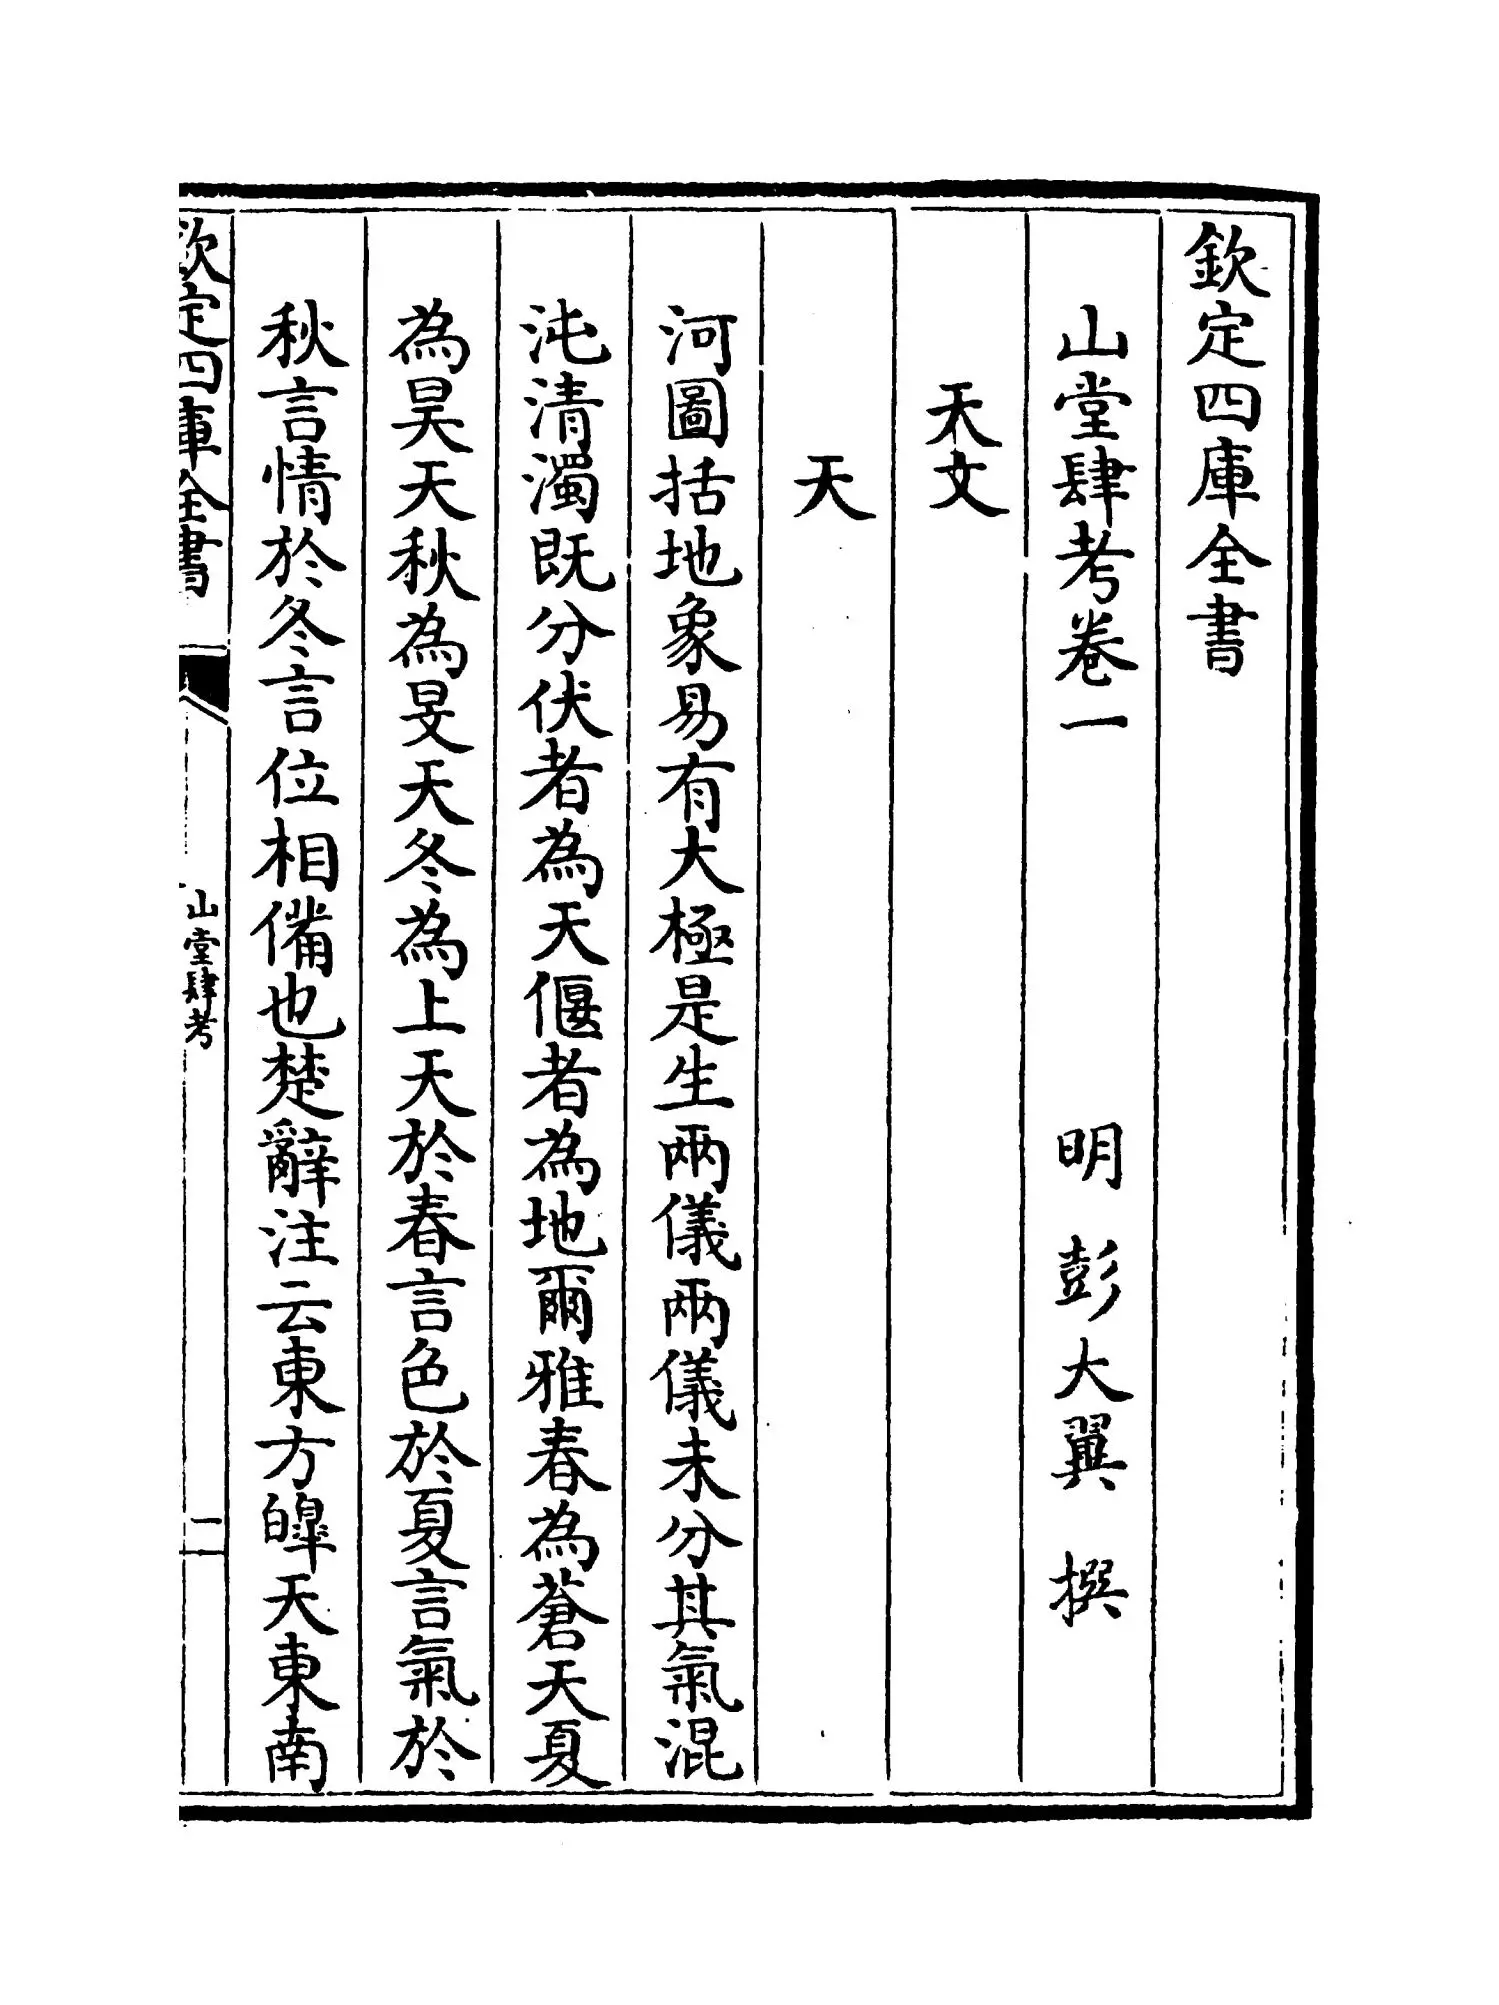 欽定四庫全書
山堂肆考卷一
明 彭大翼 撰
天文
天
河圖括地象易有大極是生兩儀兩儀未分其氣混
沌清濁既分伏者為天偃者為地爾雅春為蒼天夏
為昊天秋為旻天冬為上天於春言色於夏言氣於
秋言情於冬言位相備也楚辭注云東方皥天東南
欽定四庫全書
山堂肆考
一